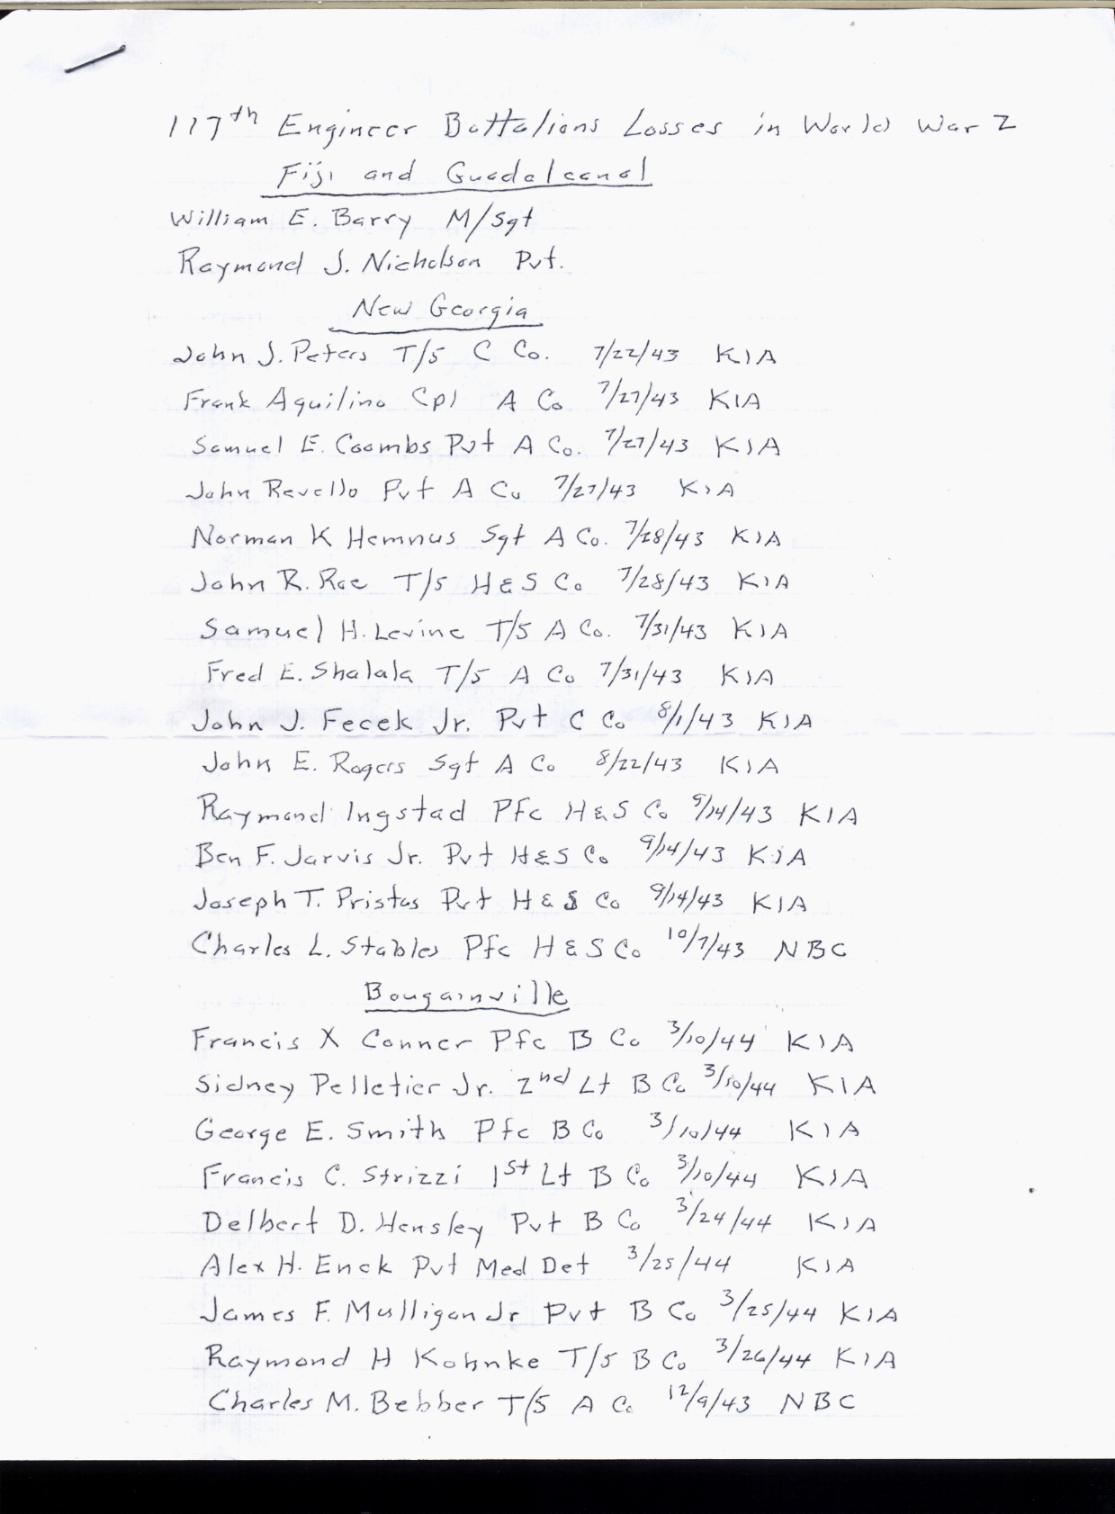 117th Engineer Battalions Losses in World War 2
Fiji and Guadalcanal
William E. Barry M/Sgt
Raymond J. Nicholson Pvt.
New Georgia
John J. Peters T/5 C Co. 7/22/43 KIA
Frank Aquilino Cpl A Co 7/27/43 KIA
Samuel E. Coombs Pvt A Co. 7/27/43 KIA
John Revello Pvt A Co 7/27/43 KIA
Norman K Hemnus Sgt A Co. 7/28/43 KIA
John R. Rae T/5 H&S Co 7/28/43 KIA
Samuel H. Levine T/5 A Co. 7/31/43 KIA
Fred E. Shalala T/5 A Co 7/31/43 KIA
John J. Fecek Jr. Pvt C Co 8/1/43 KIA
John E. Rogers Sgt A Co 8/22/43 KIA
Raymond Ingstad Pfc H&S Co 9/14/43 KIA
Ben F. Jarvis Jr. Pvt H&S Co 9/14/43 KIA
Joseph T. Pristas Pvt H&S Co 9/14/43 KIA
Charles L. Stables Pfc H&S Co 10/7/43 NBC
Bougainville
Francis X Conner Pfc B Co 3/10/44 KIA
Sidney Pelletier Jr. 2nd Lt B Co 3/10/44 KIA
George E. Smith Pfc B Co 3/10/44 KIA
Francis C. Strizzi 1st Lt B Co 3/10/44 KIA
Delbert D. Hensley Pvt B Co 3/24/44 KIA
Alex H. Enck Pvt Med Det 3/25/44 KIA
James F. Mulligan Jr Pvt B Co 3/25/44 KIA
Raymond H Kohnke T/5 B Co 3/26/44 KIA
Charles M. Bebber T/5 A Co 12/9/43 NBC